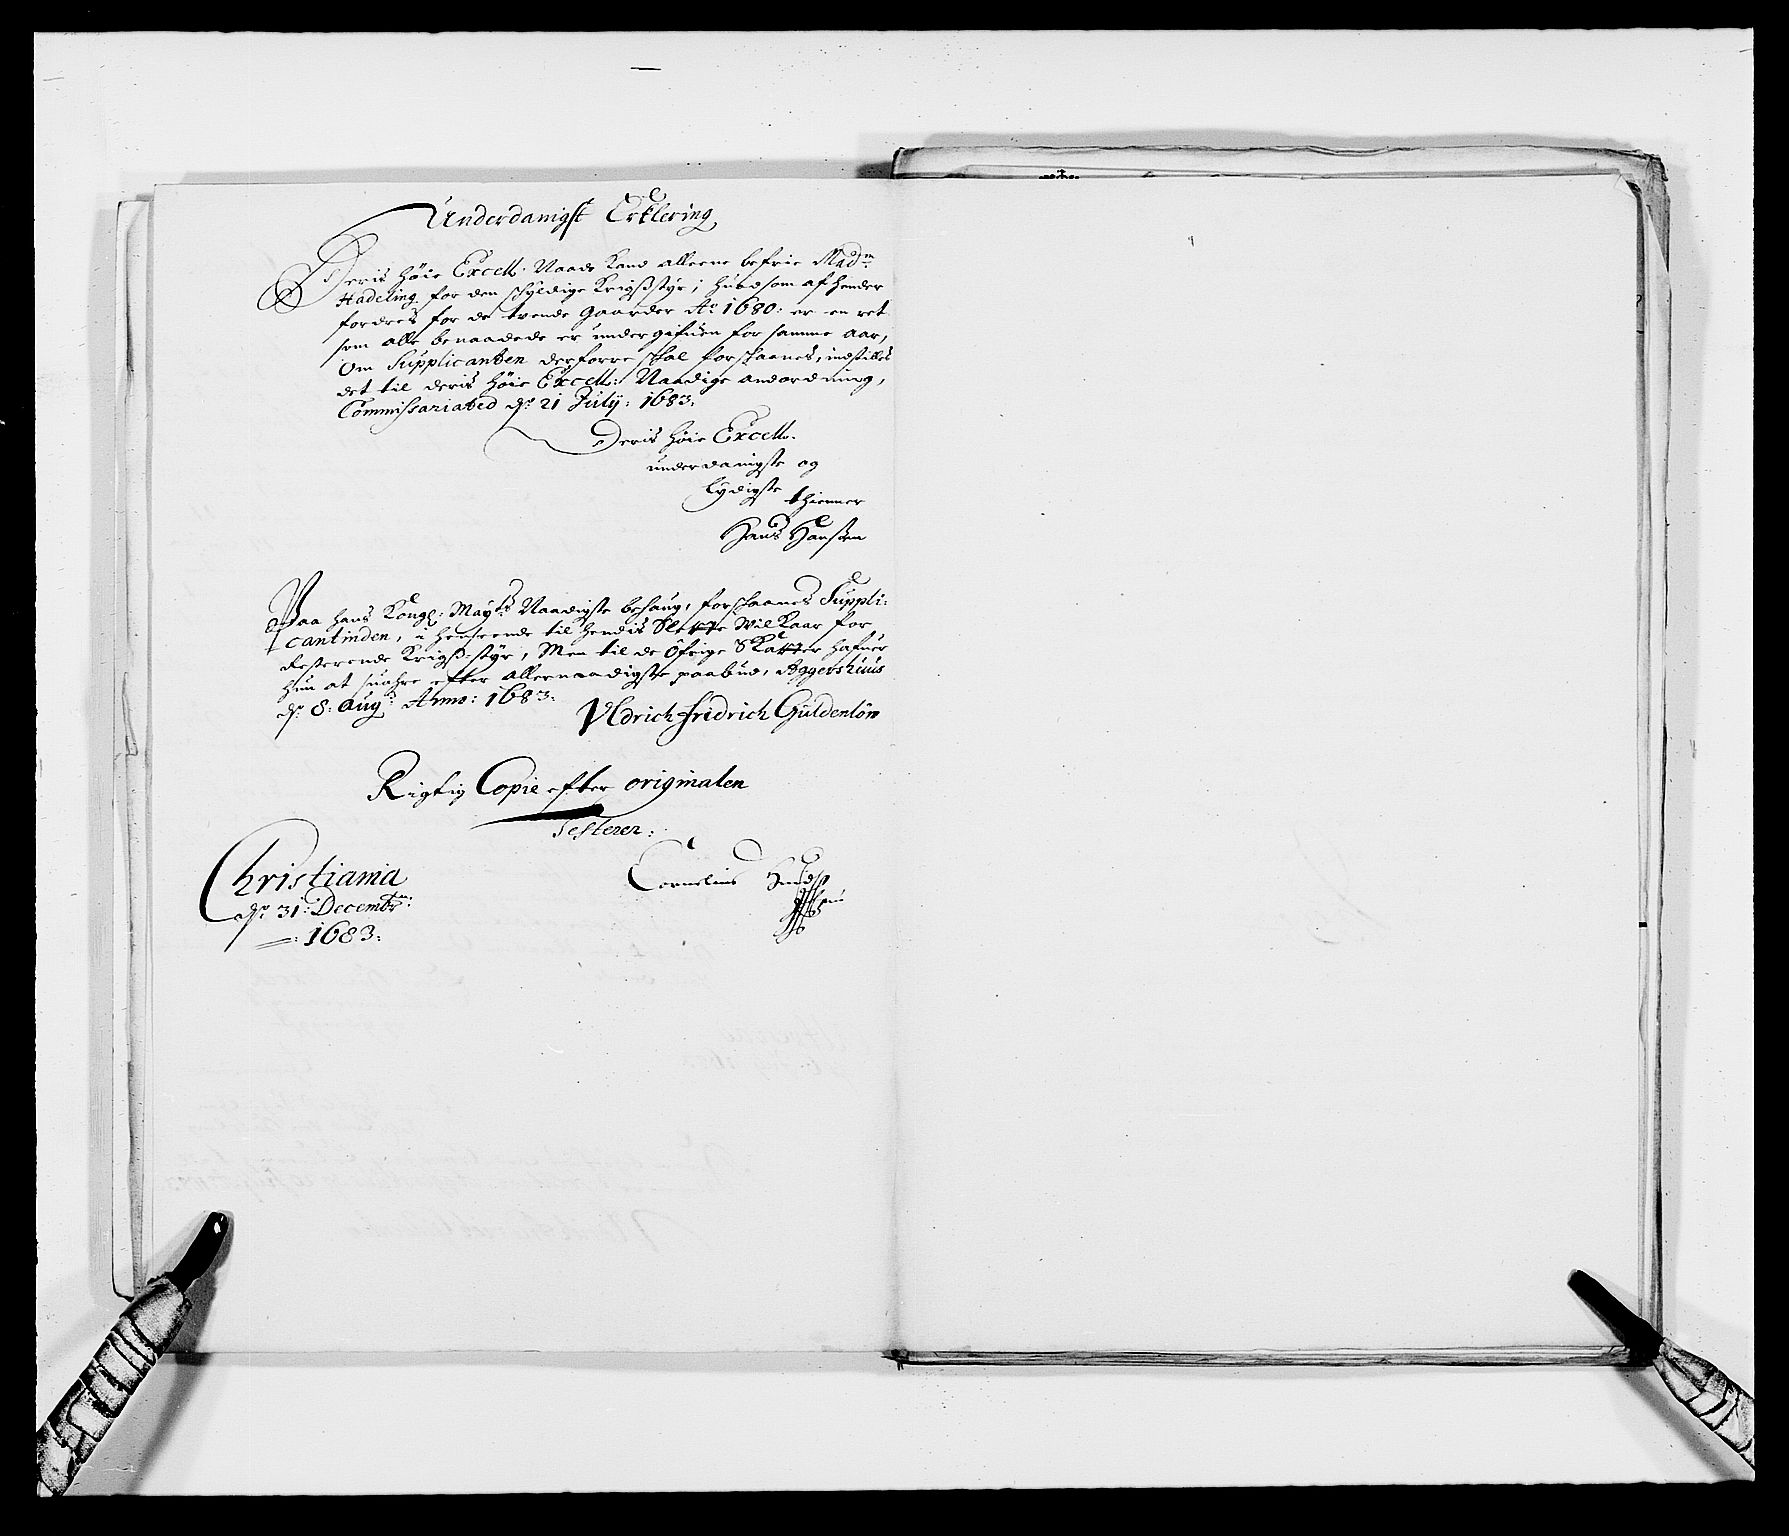 Underdanigst Erklering
Deris Høie Excell. Naade Kand alleene befrie Mad.m
Hadeling for den schyldige Krigsstyr, huad som af hender
fordres for de tvende gaarder Ao 1680: er en ret
som alle benaadede er undergifuen for samme aar,
Om Supplicanten derforre skal forskaanes, indstilles
det til deris høie Excell: Naadige andordning,
Commissariated dn 21 July: 1683.
Deris høie Excell.
underdanigste og
lydigste thienner
Hans Hanssen
Paa hans Kongl: Mayts Naadigste behaug, forskaanes Suppli:
cantinden, i henseende til hendis Slette Wilkaar for
Resterende Krigs-styr, Men til de Ofrige Skatter hafuer
hun at suahre efter allernaadigste paabud, Aggershuus
dn 8: Augti Anno: 1683.
Uldrich Fridrich Güldenlöw
Rigtig Copie efter originalen
Testerer:
Christiania
dn 31: Decembr:
1683.
Cornelius